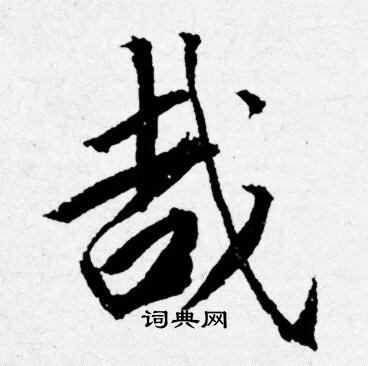 哉
词典网